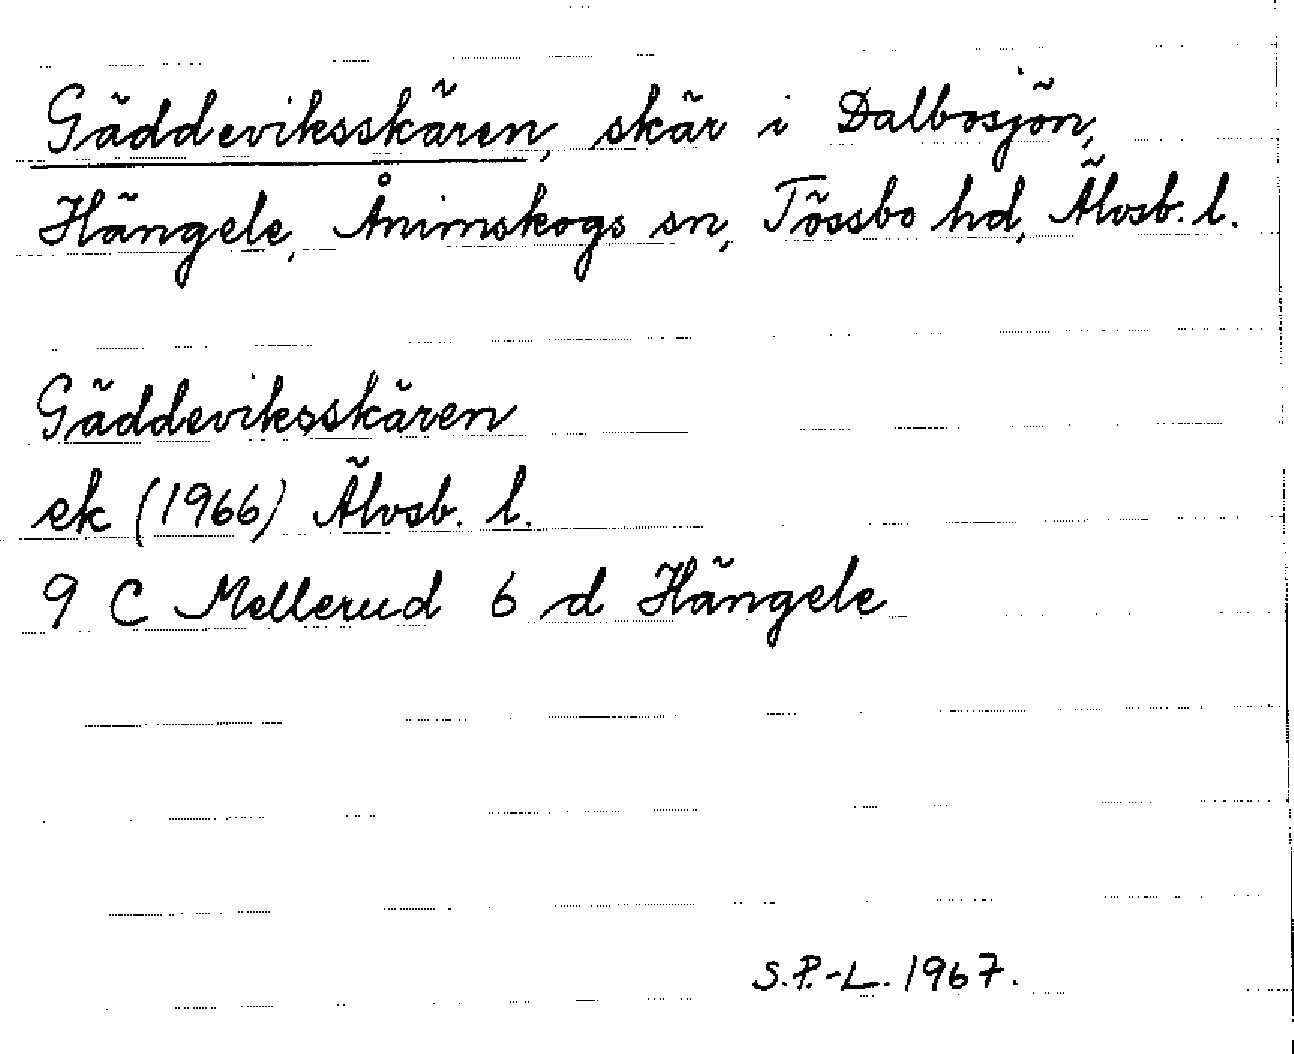 Gäddeviksskären, skär i Dalbosjön,
Hängele, Ånimskogs sn, Tössbo hd, Älvsb. l.
Gäddeviksskären
ek (1966) Älvsb. l.
9 C Mellerud 6 d Hängele
S.P.-L. 1967.